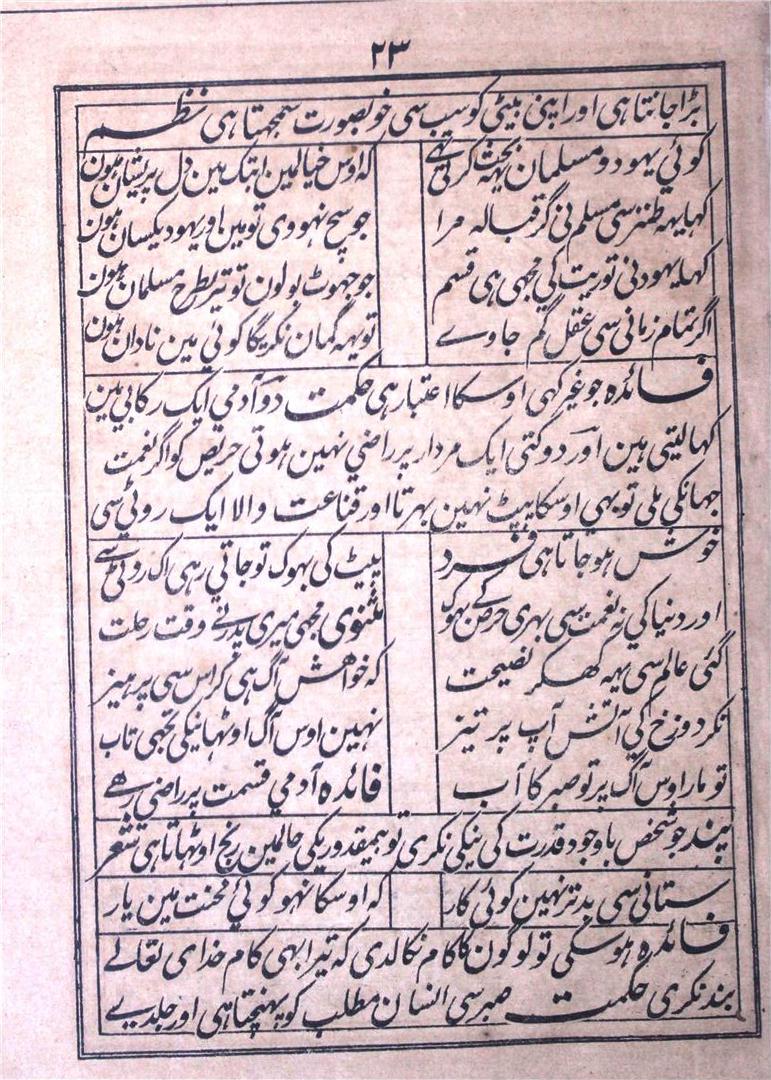 ٢٣
بڑا جانتا ہی اور اپنی بیٹی کو سب سی خوبصورت سمجھتا ہی نظم
کوئي یہود و مسلمان یہہ بحث کرتی تھے کہ اوس خیالمین ابتک ہین دل پریشان ہون
کہا یہہ طنز سی مسلم نی گر قبالہ مرا جو سچ نہووی تو مین اور یہود یکسان ہون
کہا یہود نی توریت کی مجھی ہی قسم جو جھوٹ بولون تو تیریطرح مسلمان ہون
اگر تمام زمانی سی عقل گم جاوے تو یہہ گمان نکریگا کوئي مین نادان ہون
فائدہ جو غیر کہی اوسکا اعتبار ہی حکمت دو آدمي ایک رکابي مین
کہا لیتی ہین اور دو کتی ایک مردار پر راضي نہین ہوتی حریص کو اگر نعمت
جہانکی ملی تو بھي اوسکا پیٹ نہین بہرتا اور قناعت والا ایک روٹی سی
خوش ہو جاتا ہی فرد پیٹ کی بھوک تو جاتي رہی اک روٹی سے
اور دنیا کی نہ نعمت سی بہری حرص کے بھوک مثنوی مجھی میری پدر نے وقت رحلت
گئی عالم سی یہہ کھکر نصیحت کہ خواہش آگ ہی کر اس سی پرہیز
نکر دوزخ کی آتش آپ پر تیز نہین اوس آگ اوٹہانیکی تجھی تاب
تو مار اوس آگ پر تو صبر کا آب فائدہ آدمي قسمت پر راضي رہے
پند جو شخص باوجود قدرت کی نیکی نکری تو بیمقدوریکی حالمین رنج اوٹہاتا ہی شعر
ستانی سی بدتر نہین کوئی کار کہ اوسکا نہو کوئي محنت مین یار
فائدہ ہو سکی تو لوگون کا کام نکالدی کہ تیرا بھی کام خدای تعالے
بند نکری حکمت صبر سی انسان مطلب کو پہنچتا ہی اور جلدیسے